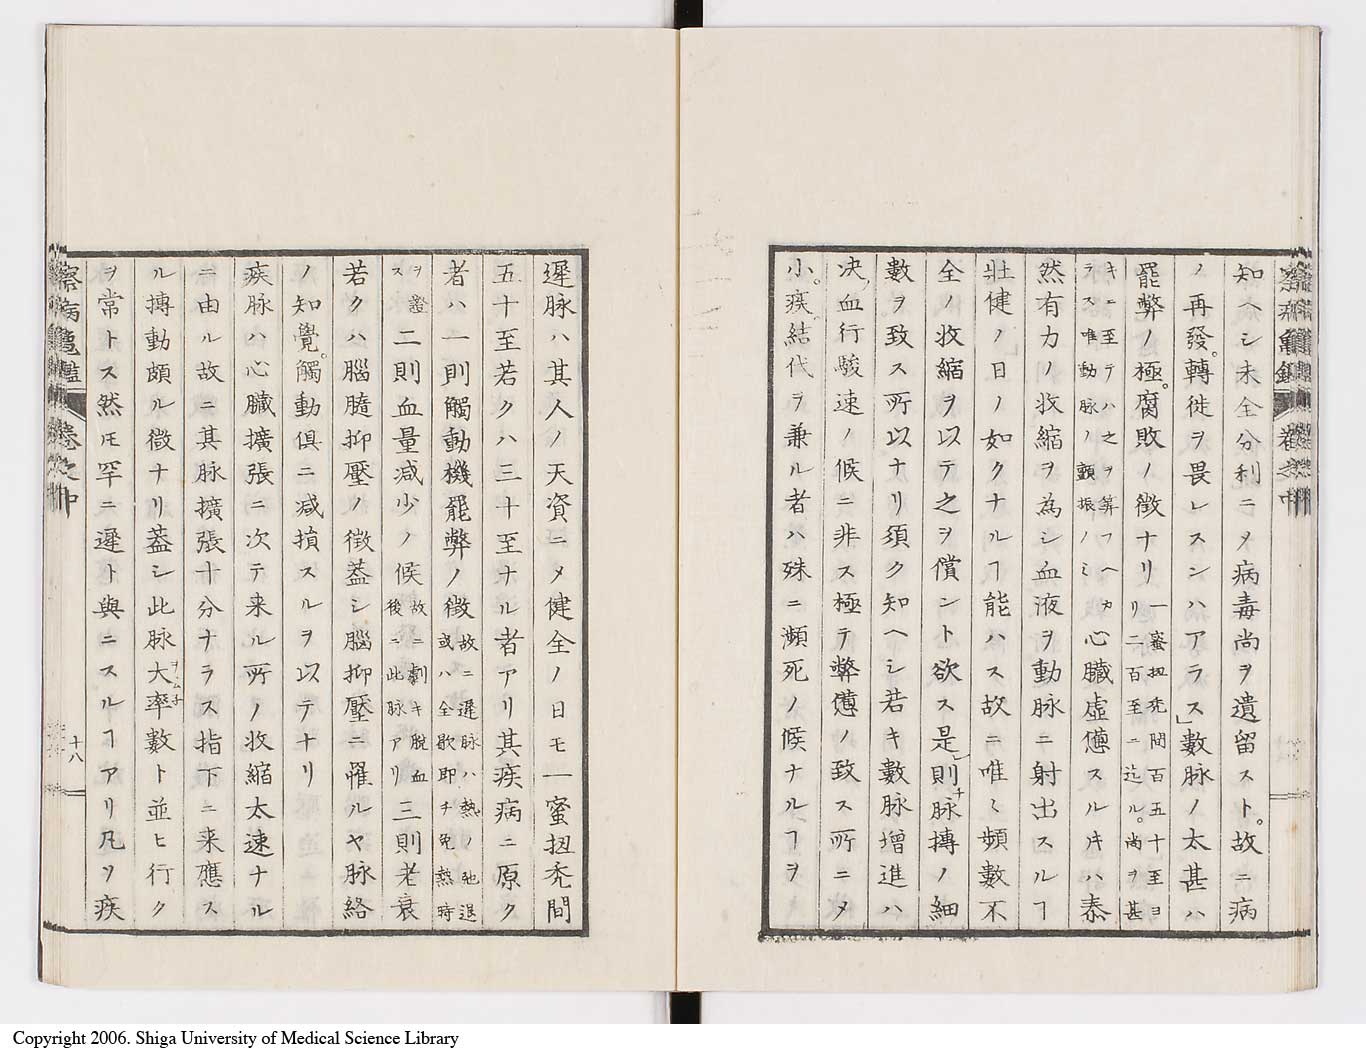 知ヘシ未全分利ニ〆病毒尚ヲ遺留スト。故ニ病
ノ再發。轉徙ヲ畏レスンハアラス」數脉ノ太甚ハ
罷弊ノ極。腐敗ノ徴ナリ一蜜扭禿間百五十至ヨリ二百至ニ迄ル。尚ヲ甚
キニ至テハ之ヲ算フヘカラス唯動脉ノ顫振ノミ心臓虚憊スル片ハ泰
然有力ノ収縮ヲ為シ血液ヲ動脉ニ射出スルヿ
壮健ノ日ノ如クナルヿ能ハス故ニ唯〻頻數不
全ノ收縮ヲ以テ之ヲ償ント欲ス是則チ脉搏ノ細
數ヲ致ス所以ナリ須ク知ヘシ若キ數脉増進ハ
决〆血行駿速ノ候ニ非ス極テ弊憊ノ致ス所ニ〆
小。疾結代ヲ兼ル者ハ殊ニ瀕死ノ候ナルヿヲ
遲脉ハ其人ノ天資ニ〆健全ノ日モ一蜜扭禿間
五十至若クハ三十至ナル者アリ其疾病ニ原ク
者ハ一則觸動機罷弊ノ徴故ニ遲脉ハ熱ノ弛退或ハ全歇即チ免熱時
ヲ證ス二則血量减少ノ候故ニ劇キ脱血後ニ此脉アリ三則老衰
若クハ腦髓抑壓ノ徴蓋シ腦抑壓ニ罹ルヤ脉絡
ノ知覺。觸動倶ニ减損スルヲ以テナリ
疾脉ハ心臓擴張ニ次テ来ル所ノ收縮太速ナル
ニ由ル故ニ其脉擴張十分ナラス指下ニ来應ス
ル搏動頗ル微ナリ蓋シ此脉大率ヲヽムチ數ト並ヒ行ク
ヲ常トス然𪜈罕ニ遲ト與ニスルヿアリ凡ソ疾
察病亀鑑 巻之中
十八
Copyright 2006. Shiga University of Medical Science Library